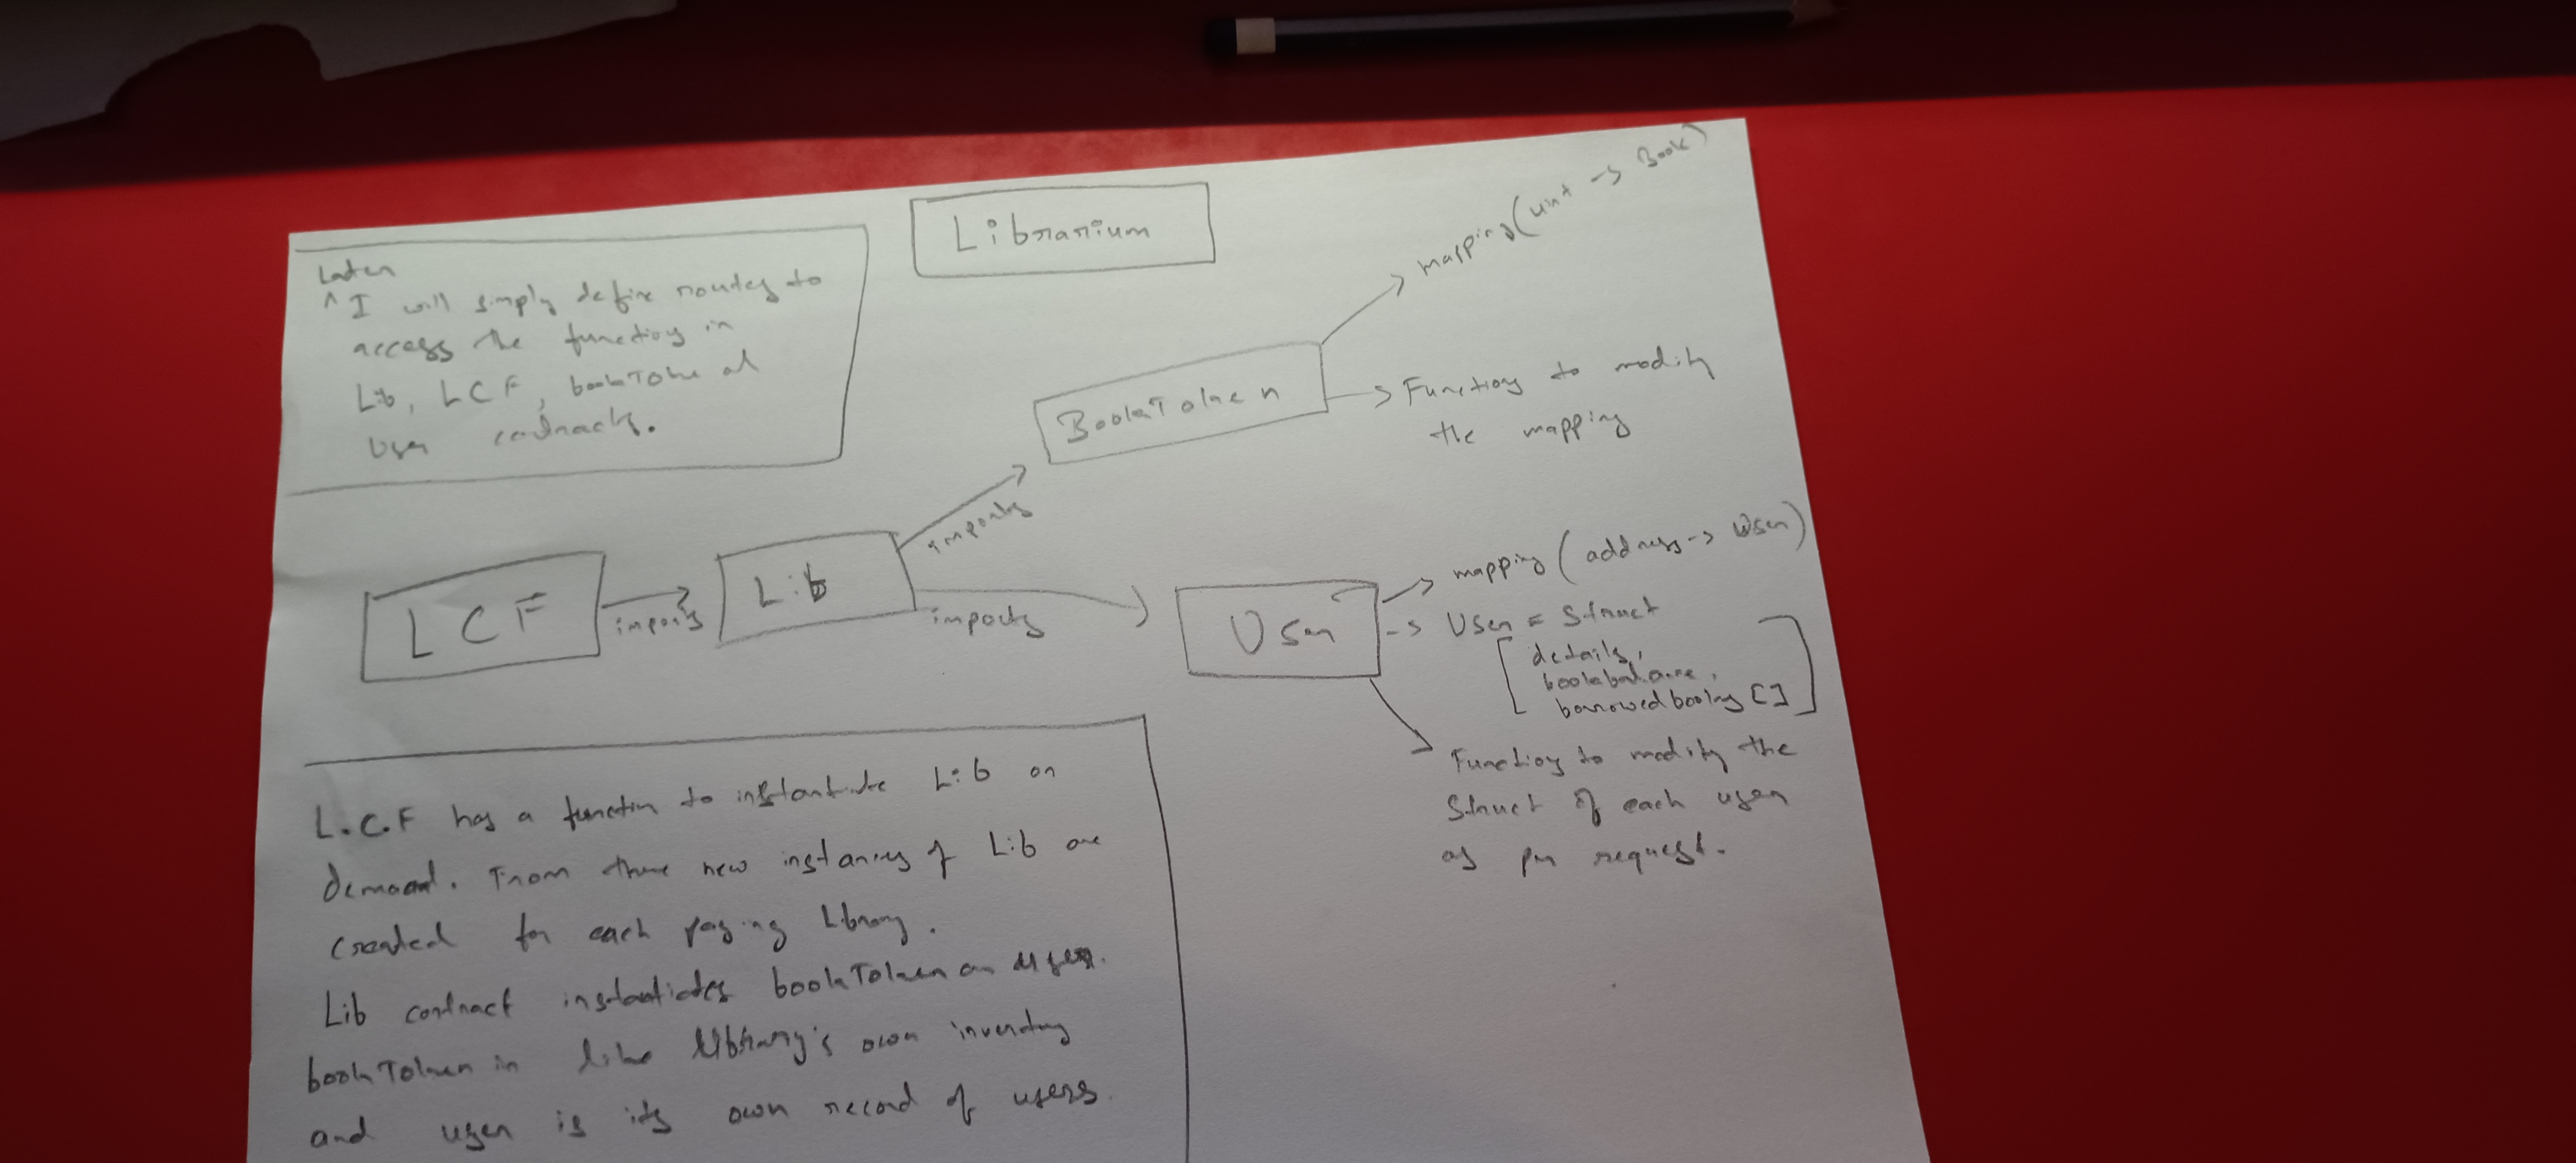 Librarium
Later
^ I will simply define routes to
access the functions in
Lib, LCF, bookToken and
User contracts.
BookToken
mapping (uint -> Book)
Functions to modify
the mapping
imports
LCF
imports
Lib
imports
User
mapping (address -> User)
User = Struct
details,
bookbalance,
borrowedbooks []
Functions to modify the
Struct of each user
as per request.
L.C.F has a function to instantiate Lib on
demand. From there new instances of Lib are
created for each paying Library.
Lib contract instantiates bookToken an user.
bookToken in like library's own inventory
and user is its own record of users.